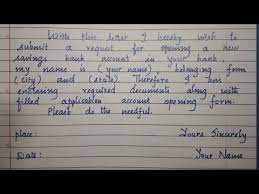 With this letter I hereby wish to
submit a request for opening a new
savings bank account in your bank.
my name is (your name), belonging from
(city) and (state). Therefore I am
enclosing required documents along with
filled application account opening form.
Please do the needful.
place: Yours Sincerely
Date: Your Name